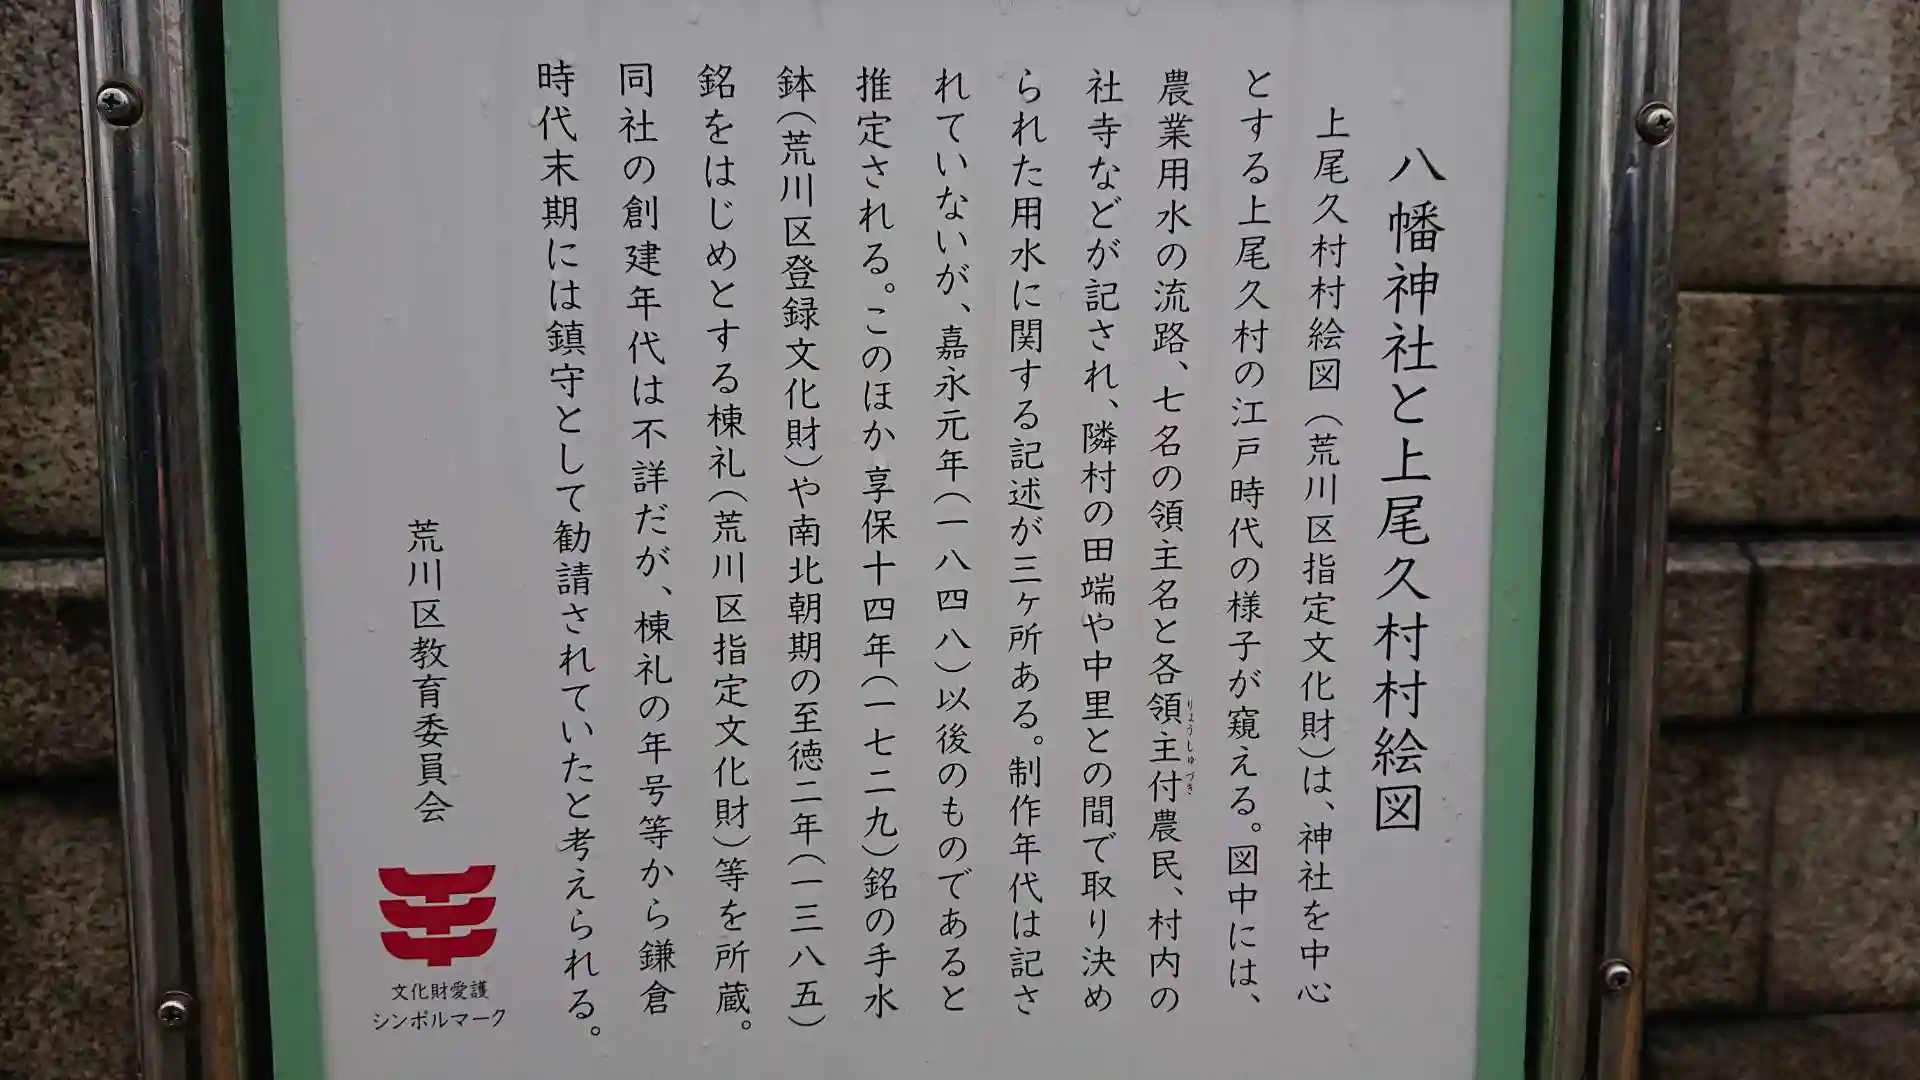 八幡神社と上尾久村村絵図
上尾久村村絵図（荒川区指定文化財）は、神社を中心
とする上尾久村の江戸時代の様子が窺える。図中には、
農業用水の流路、七名の領主名と各領主付農民、村内の
りょうしゅづき
社寺などが記され、隣村の田端や中里との間で取り決め
られた用水に関する記述が三ヶ所ある。制作年代は記さ
れていないが、嘉永元年（一八四八）以後のものであると
推定される。このほか享保十四年（一七二九）銘の手水
鉢（荒川区登録文化財）や南北朝期の至徳二年（一三八五）
銘をはじめとする棟札（荒川区指定文化財）等を所蔵。
同社の創建年代は不詳だが、棟札の年号等から鎌倉
時代末期には鎮守として勧請されていたと考えられる。
荒川区教育委員会
文化財愛護
シンボルマーク